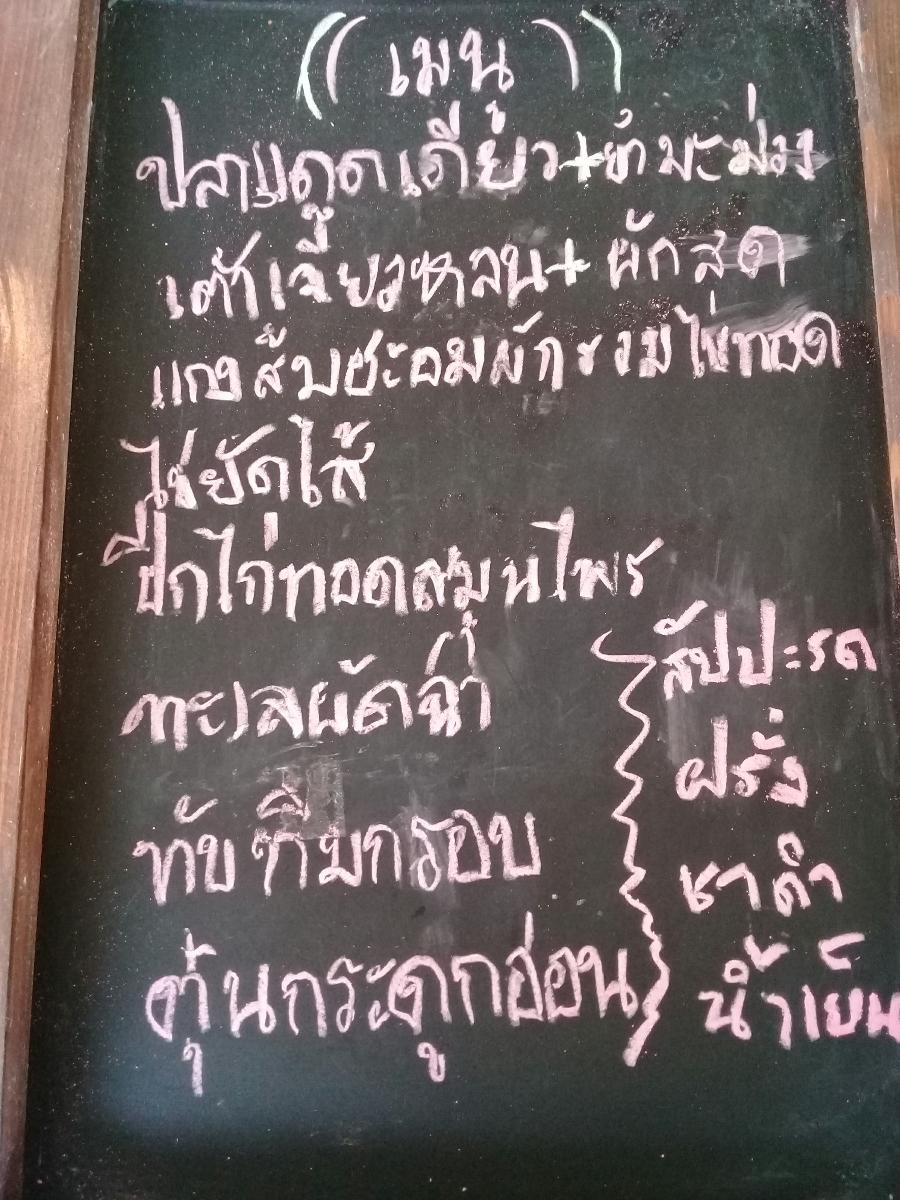 ((เมนู))
ปลาแดดเดียว+ยำมะม่วง
เต้าเจี้ยวหลน+ผักสด
แกงส้มชะอมผักรวมไข่ทอด
ไข่ยัดไส้
ปีกไก่ทอดสมุนไพร
ทะเลผัดฉ่ำ
ทับทิมกรอบ
ตุ๋นกระดูกอ่อน
สัปปะรด
ฝรั่ง
ชาดำ
น้ำเย็น